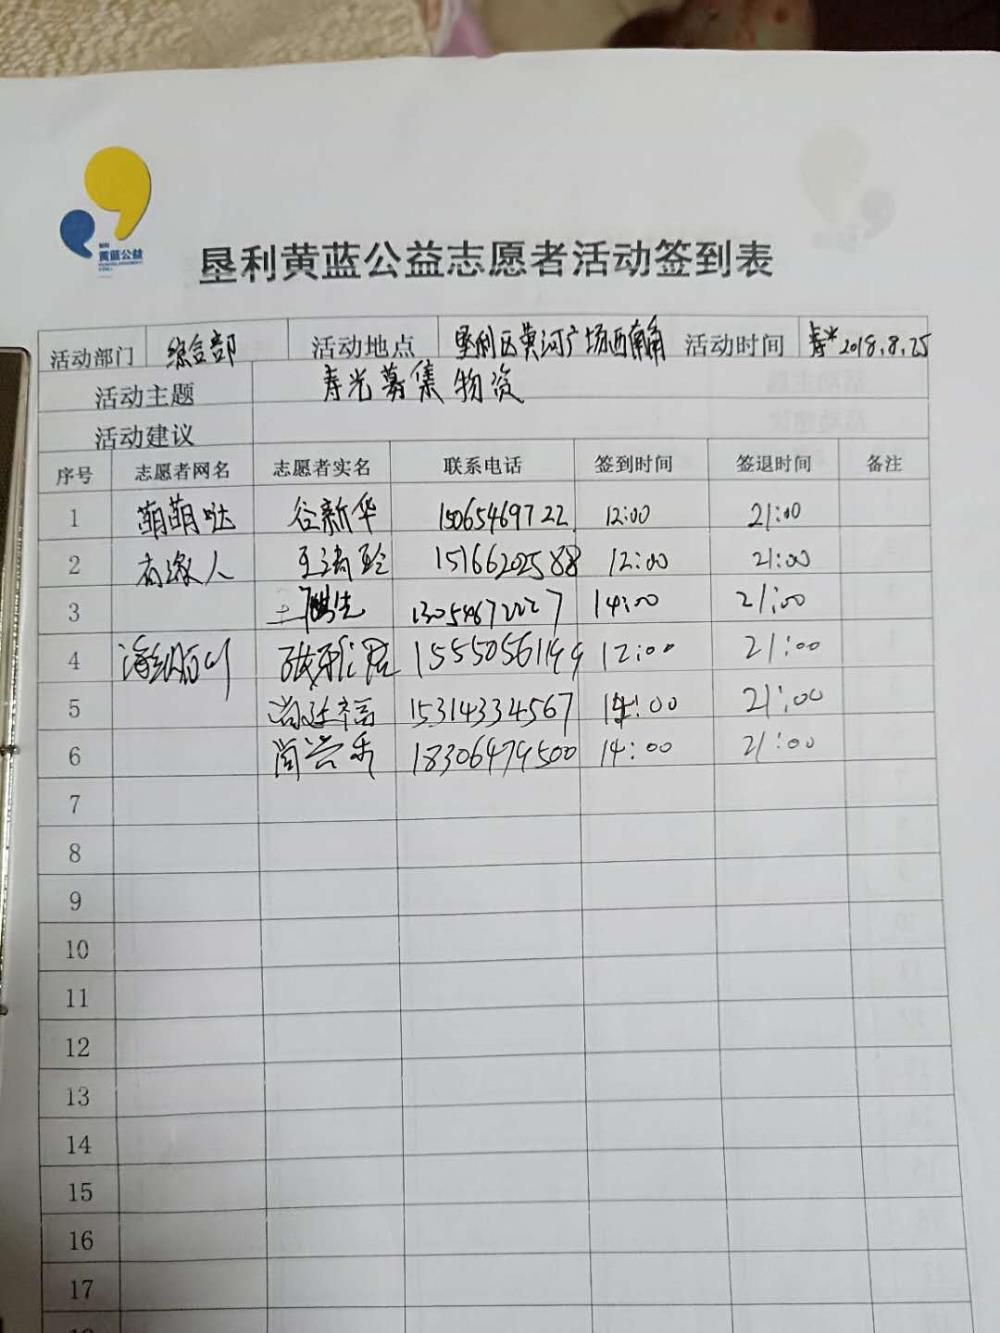 黄蓝公益
垦利黄蓝公益志愿者活动签到表
活动部门 综合部 活动地点 垦利区黄河广场西南角 活动时间 2018.8.25
活动主题 寿光募集物资
活动建议
序号 志愿者网名 志愿者实名 联系电话 签到时间 签退时间 备注
1 萌萌哒 谷新华 15065469722 12:00 21:00
2 有缘人 15166202588 12:00 21:00
3 14:00 21:00
4 海纳百川 15550561199 12:00 21:00
5 15314334567 14:00 21:00
6 18306479500 14:00 21:00
7
8
9
10
11
12
13
14
15
16
17